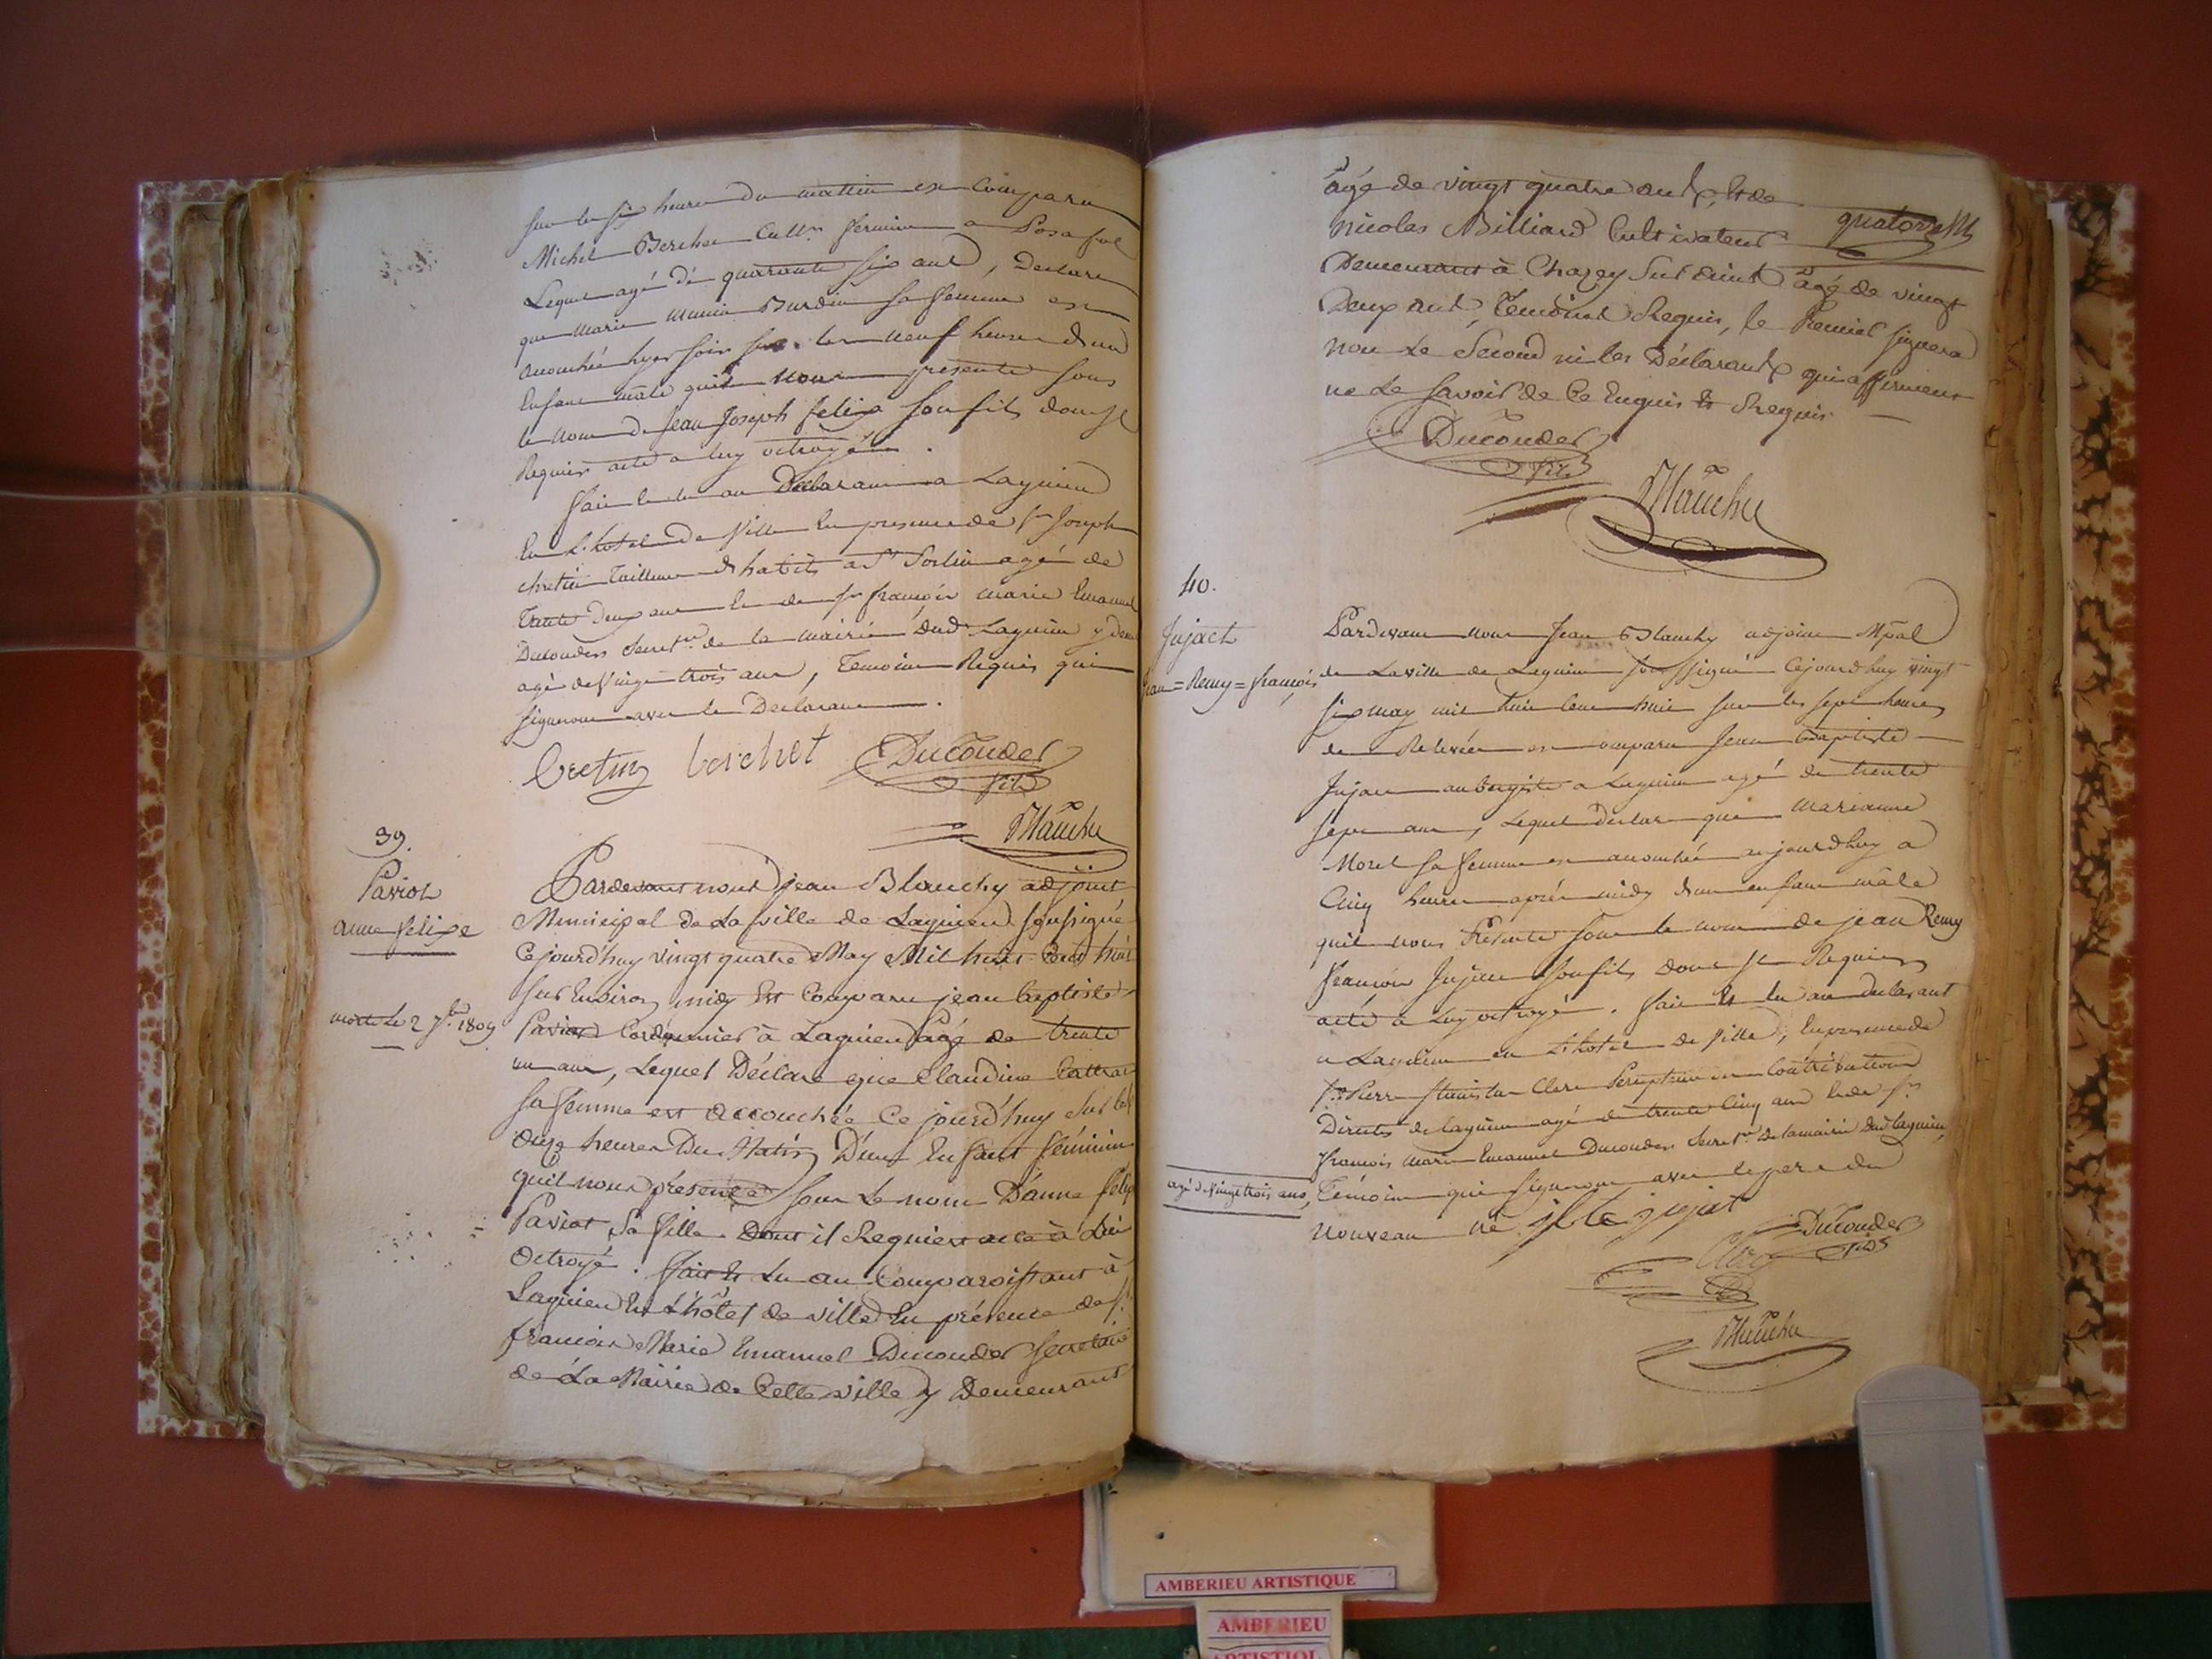 sur les six heures du matin est Comparu
Michel Berchet Cult.r fermier a Posafol
Lequel agé de quarante six ans, Declare
que marie Burdin sa femme est
accouchée hyer soir sur les neuf heures d'un
Enfant mâle qu'il nous presente sous
le nom de Jean Joseph felix son fils dont Il
Requier acte a luy octroyé.
fait Et lu au Déclarant a Lagnieu
En L'hotel de Ville En presence de s.r Joseph
chretin Tailleur d'habits a S.t Sorlin agé de
Trente Deux ans Et de s.r françois marie Emanuel
Ducouder Secret.re de la mairie dud. Lagnieu y dem.
agé de Vingt trois ans, Temoins Requis qui
signeront avec le Déclarant.
berchet Ducouder
fils
Blanchy
39.
Paviot
anne felixe
morte le 2 7.bre 1809
Pardevant nous jean Blanchy adjoint
Municipal de La ville de Lagnieu soussigné
Cejourd'huy vingt quatre May Mil huit Cent huit
sur Environ midy Est Comparu jean baptiste
Paviot Cordonnier à Lagnieu âgé de trente
un ans, Lequel Déclare que Claudine
sa femme est accouchée Ce jourd'huy sur les
onze heures Du Matin D'un Enfant féminin
qu'il nous présente sous Le nom D'anne felix
Paviot Sa fille Dont il Requiert acte à Lui
Octroyé. fait Et Lu au Comparoissant à
Lagnieu En L'hôtel de ville En présence de s.r
francois Marie Emanuel Ducouder secretaire
de La Mairie de Cette ville y Demeurant
âgé de vingt quatre ans, Et de
quatorze
nicolas Billiard Cultivateur
Demeurant à Chazey Sur dains âgé de vingt
Deux ans, Temoins Requis, le Premier signera
non Le Second ni les Déclarants qui affirment
ne Le Savoir de Ce Enquis Et Requis.
Ducouder
fils
Blanchy
40.
Jujact
Jean=Remy=françois
Pardevant nous Jean Blanchy adjoint Mpal
de La ville de Lagnieu soussigné Cejourd'huy vingt
six may mil huit Cent huit sur les sept heures
de Relevée est comparu Jean Baptiste
Jujat aubergiste a Lagnieu agé de trente
sept ans, Lequel Declare que marianne
Morel sa femme est accouchée aujourdhuy a
Cinq heures aprés midy d'un enfant mâle
quil nous Présente sous le nom de jean Remy
françois Jujat son fils dont Il Requier
acte à Luy octroyé. fait Et lu au declarant
a Lagnieu en L'hotel de Ville, En presence de
s.r Pierre Stanislas Clerc Percepteur des Contributions
Directes de lagnieu agé de trente Cinq ans Et de s.r
françois marie Emanuel Ducouder Secret.re De la mairie Dud. lagnieu,
agé de vingt trois ans,
Témoins qui signeront avec le pere du
nouveau né. j bte jujat
Ducouder
fils
Clerc
Blanchy
AMBERIEU ARTISTIQUE
AMBERIEU
ARTISTIQUE